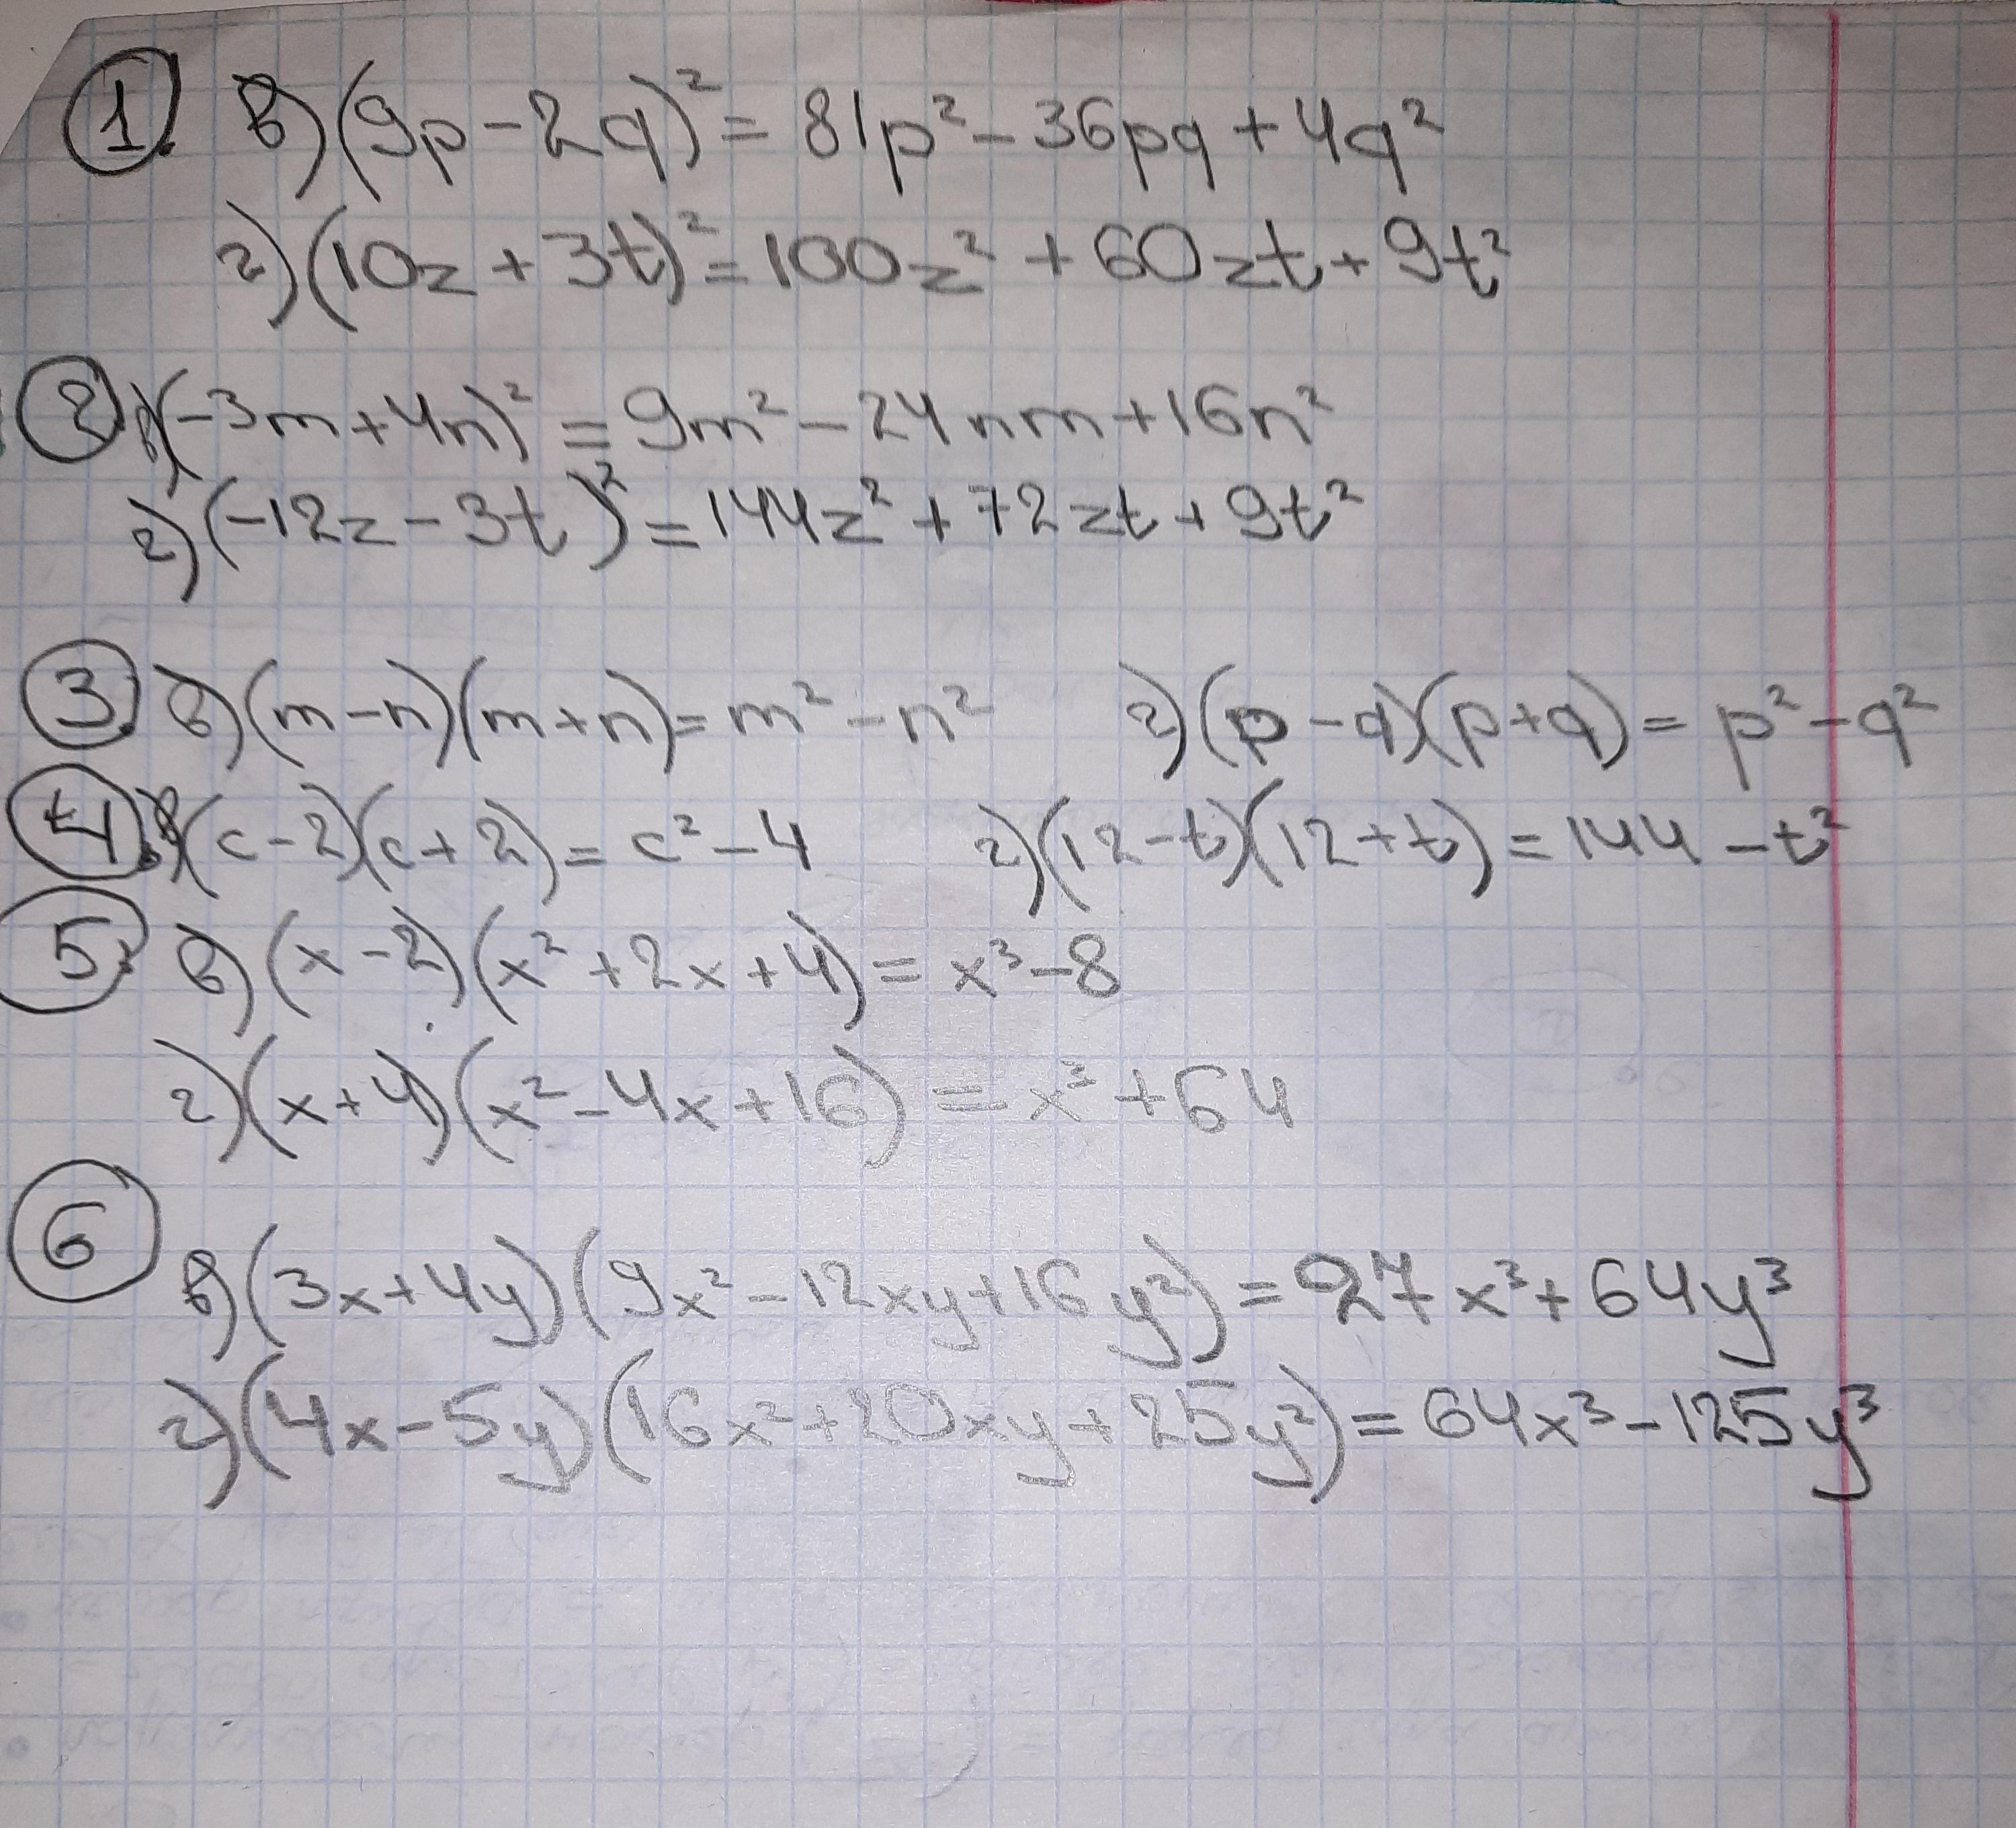 1. в) (9p - 2q)² = 81p² - 36pq + 4q²
г) (10z + 3t)² = 100z² + 60zt + 9t²
2. в) (-3m + 4n)² = 9m² - 24nm + 16n²
г) (-12z - 3t)² = 144z² + 72zt + 9t²
3. в) (m - n)(m + n) = m² - n² г) (p - q)(p + q) = p² - q²
4. в) (c - 2)(c + 2) = c² - 4 г) (12 - t)(12 + t) = 144 - t²
5. в) (x - 2)(x² + 2x + 4) = x³ - 8
г) (x + 4)(x² - 4x + 16) = x³ + 64
6 в) (3x + 4y)(9x² - 12xy + 16y²) = 27x³ + 64y³
г) (4x - 5y)(16x² + 20xy + 25y²) = 64x³ - 125y³